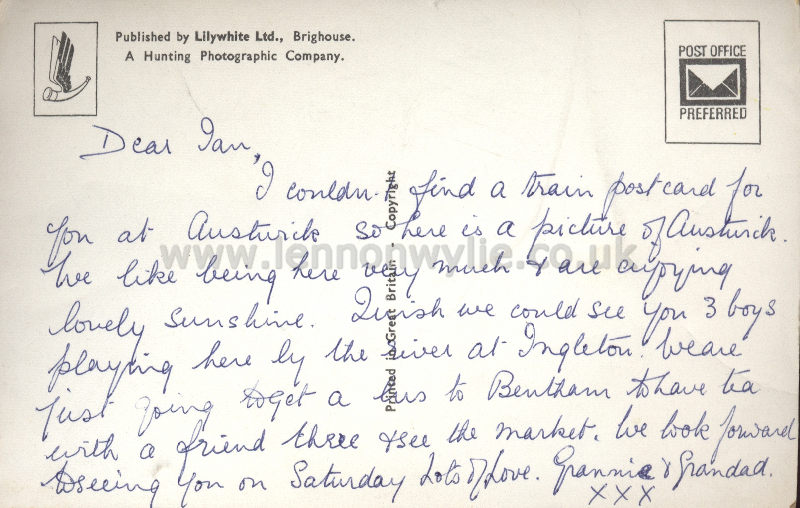 Published by Lilywhite Ltd., Brighouse.
A Hunting Photographic Company.
POST OFFICE
PREFERRED
Dear Ian,
I couldn't find a train postcard for
you at Austwick so here is a picture of Austwick.
We like being here very much & are enjoying
lovely sunshine. I wish we could see you 3 boys
playing here by the river at Ingleton. We are
just going to get a bus to Bentham to have tea
with a friend there & see the market. We look forward
to seeing you on Saturday Lots of Love. Grannie & Grandad.
XXX
Printed in Great Britain - Copyright
www.lennonwylie.co.uk